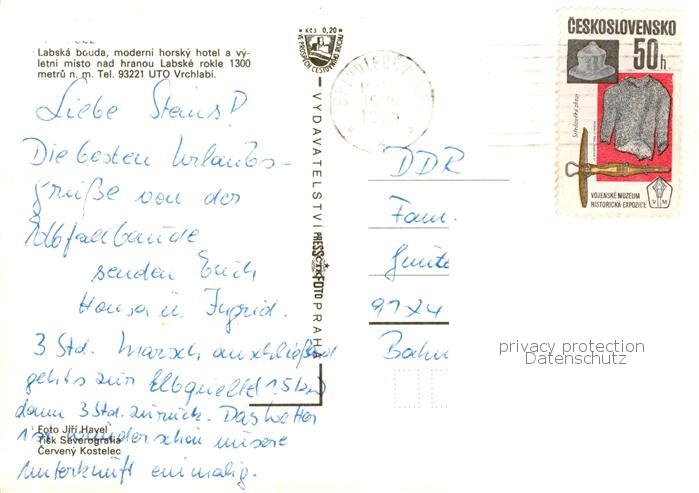 Labská bouda, moderní horský hotel a vý-
letní místo nad hranou Labské rokle 1300
metrů n. m. Tel. 93221 UTO Vrchlabí.
Liebe
Die besten Urlaubs-
grüße von der
Elbfallbaude
senden Euch
Hansa u. Ingrid.
3 Std. Marsch anschließend
geht's zur Elbquelle (1,5 km)
dann 3 Std. zurück. Das Wetter
ist wunderschön unsere
Unterkunft einmalig.
Foto Jiří Havel
Tisk Severografia
Červený Kostelec
Kčs 0,20
VE PROSPĚCH CESTOVNÍHO RUCHU
VYDAVATELSTVÍ PRESSFOTO PRAHA
ČESKOSLOVENSKO
50h
VOJENSKÉ MUZEUM
HISTORICKÁ EXPOZICE
V M
DDR
Fam.
privacy protection
Datenschutz